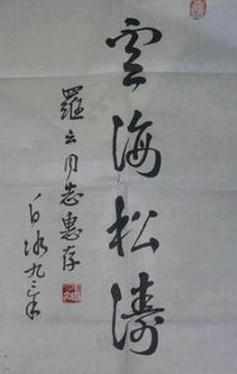 雲海松濤
羅云同志惠存
白冰九三年